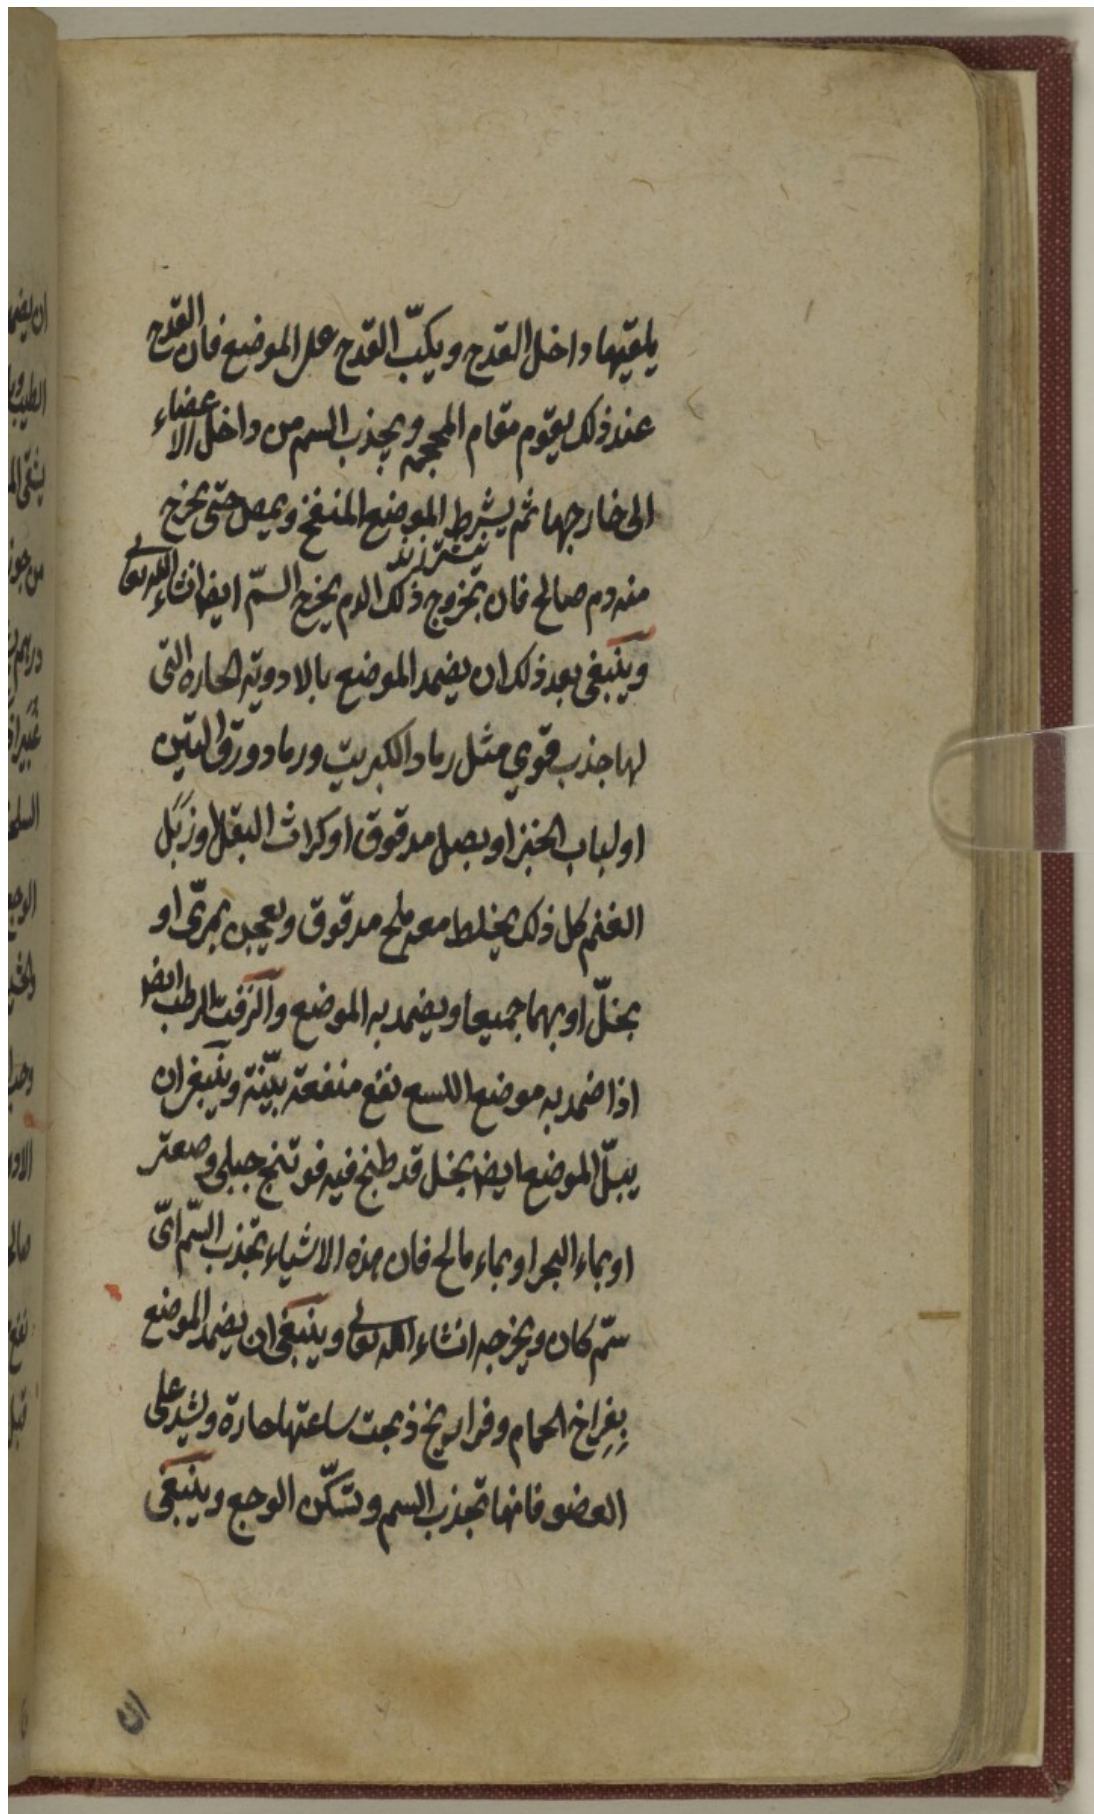 يلقيها داخل القدح ويكبّ القدح على الموضع فان القدح
عند ذلك يقوم مقام المحجمه ويجذب السم من داخل الاعضاء
الى خارجها ثم يشرط الموضع المنفخ ويمص حتى يخرج
منه دم صالح فان بخروج ذلك الدم يخرج السمّ ايضا انشاء الله تعالى
وينبغى بعد ذلك ان يضمد الموضع بالادوية الحاره التى
لها جذب قوي مثل رماد الكبريت ورماد ورق التين
او لباب الخبز او بصل مدقوق او كراث البقل او زبل
الغنم كل ذلك يخلط معه ملح مدقوق ويعجن بمرّى او
بخلّ او بهما جميعا ويضمد به الموضع والزفت الرطب ايضا
اذا ضمد به موضع اللسع نفع منفعة بيّنة وينبغى ان
يبلّ الموضع ايضا بخل قد طبخ فيه فوتنج جبلى وصعتر
او بماء البحر او بماء مالح فان هذه الاشياء تجذب السّم اىّ
سمّ كان ويخرجه انشاء الله تعالى وينبغى ان يضمد الموضع
بِفِراخ الحمام وفراريخ ذبحت ساعتها حارة ويشد على
العضو فانها تجذب السم وتسكّن الوجع وينبغى
ان